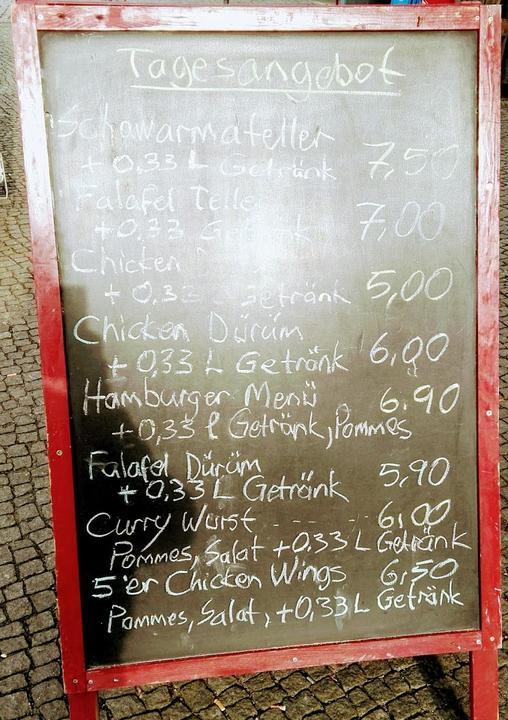 Tagesangebot
Schawarmateller
+ 0,33 L Getränk 7,50
Falafel Telle
+ 0,33 Getränk 7,00
Chicken
+ 0,33 Getränk 5,00
Chicken Dürüm
+ 0,33 L Getränk 6,00
Hamburger Menü 6.90
+ 0,33 l Getränk, Pommes
Falafel Dürüm
+ 0,33 L Getränk 5,90
Curry Wurst ----- 6,00
Pommes, Salat + 0.33 L Getränk
5'er Chicken Wings 6,50
Pommes, Salat, + 0,33 L Getränk